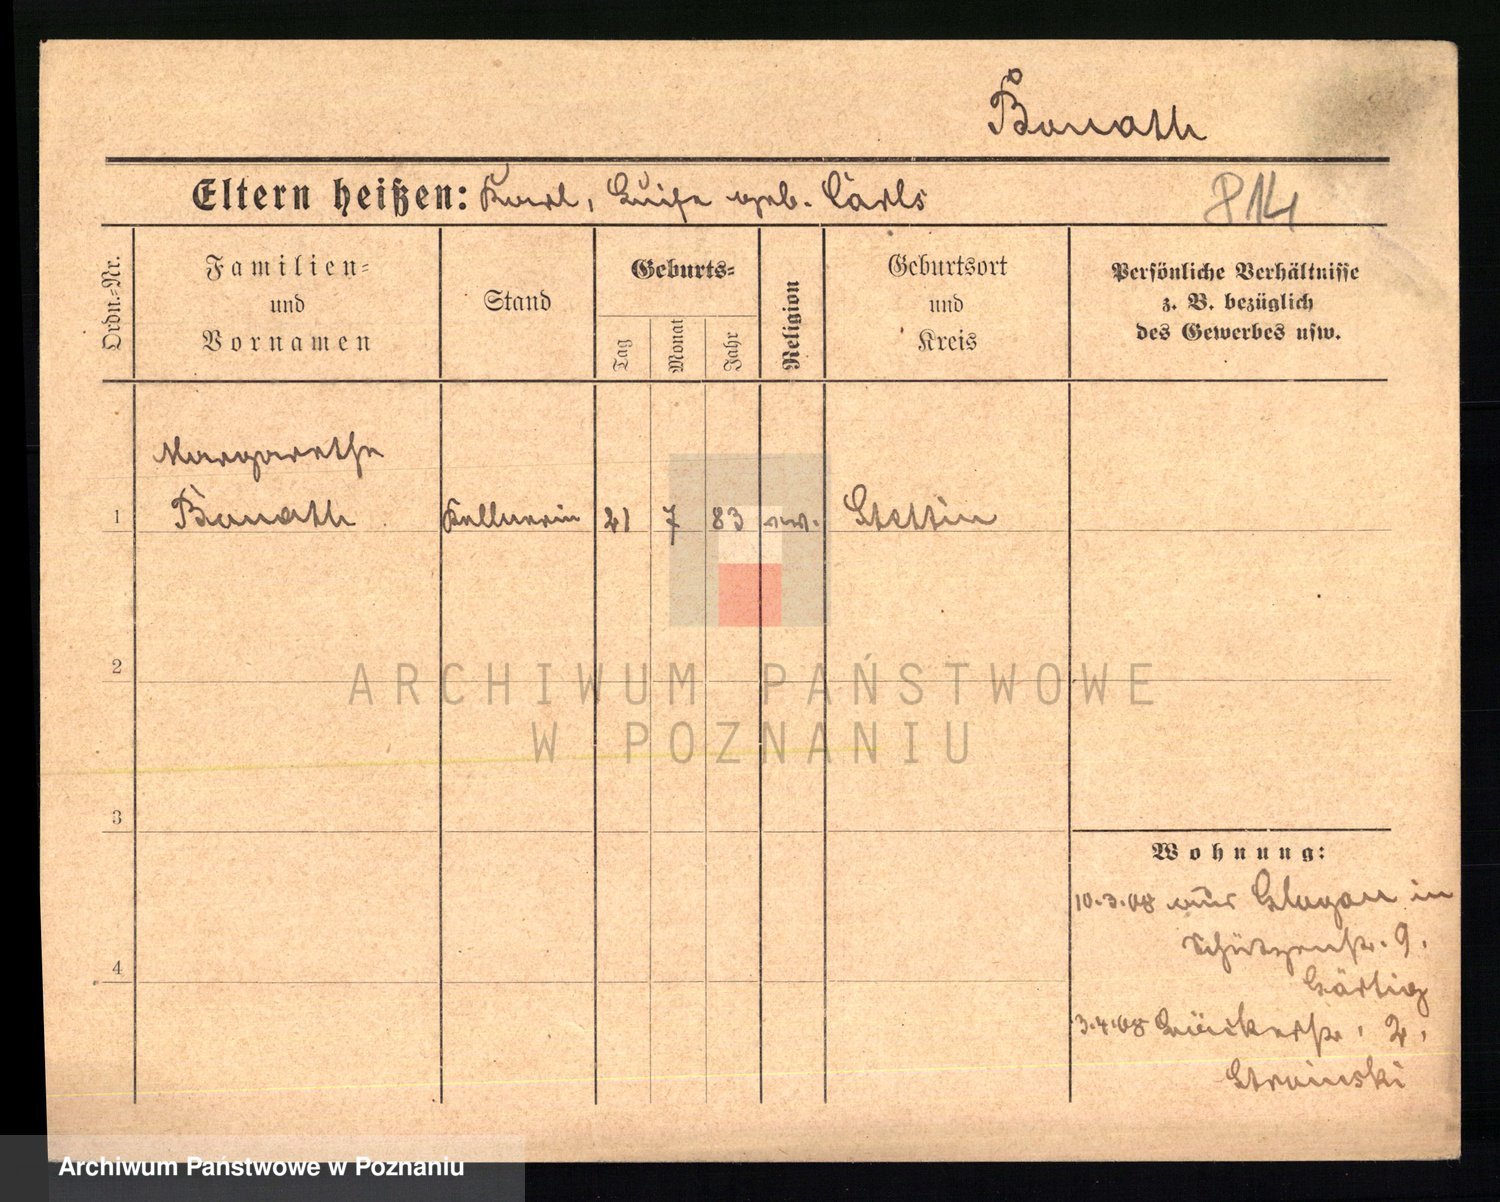 Bonath
Eltern heißen: Karl, Luise geb. Carls
814
Ordn.=Nr.
Familien=
und
Vornamen
Stand
Geburts=
Tag
Monat
Jahr
Religion
Geburtsort
und
Kreis
Persönliche Verhältnisse
z. B. bezüglich
des Gewerbes usw.
Margarethe
1 Bonath Kellnerin 21 7 83 ev. Stettin
2
ARCHIWUM PAŃSTWOWE
W POZNANIU
3
Wohnung:
10.3.08 aus Glogau in
Schützenstr. 9.
4
3.4.08 2.
Stroinski
Archiwum Państwowe w Poznaniu